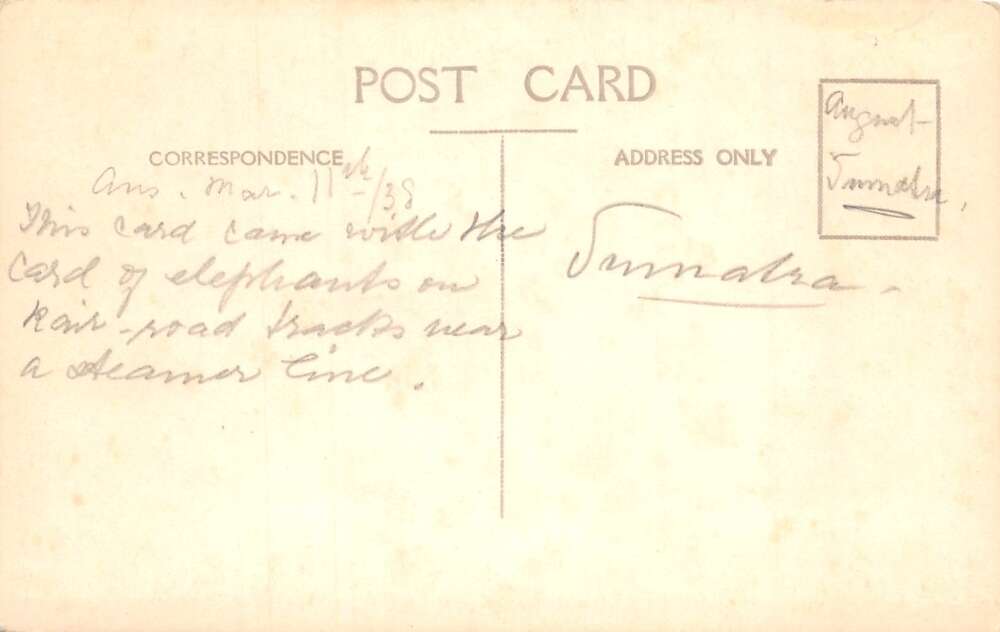 POST CARD
CORRESPONDENCE
ADDRESS ONLY
August-
Sumatra.
Ans. Mar. 11th/38
This card came with the
card of elephants on
Rair-road tracks near
a steamer line.
Sumatra-